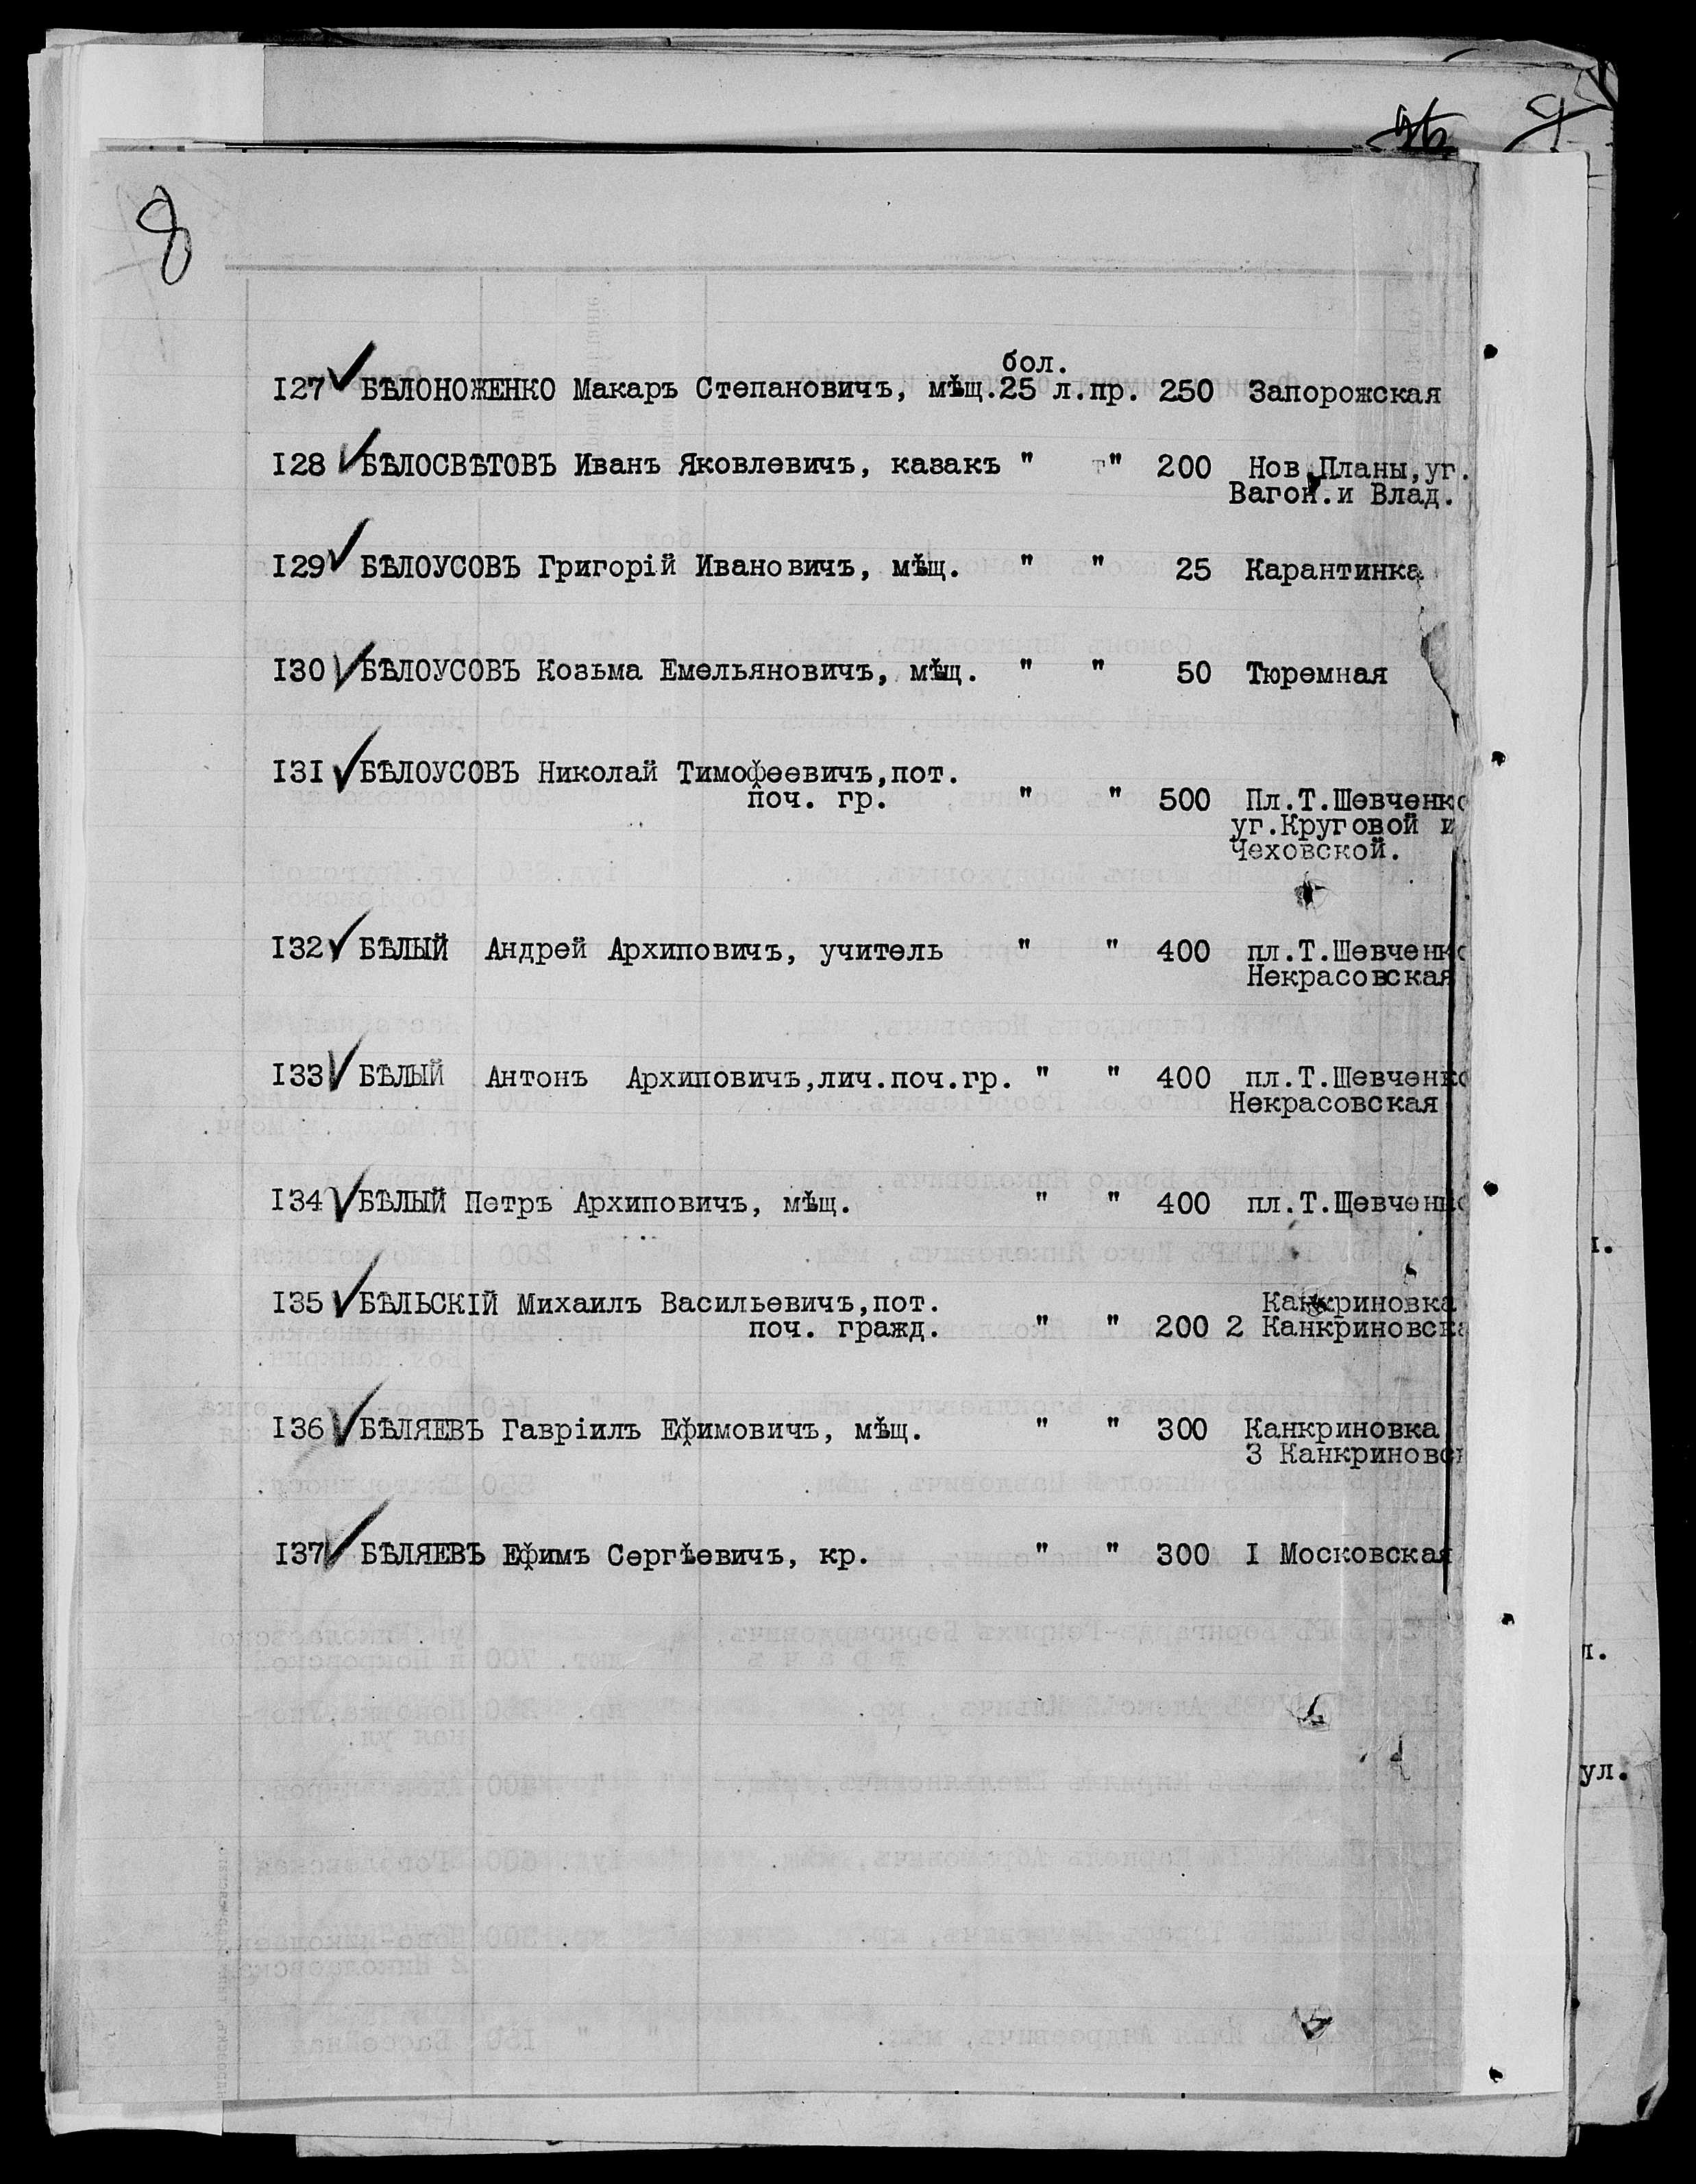 8
бол.
I27 БѢЛОНОЖЕНКО Макаръ Степановичъ, мѣщ.25 л.пр. 250 Запорожская
I28 БѢЛОСВѢТОВЪ Иванъ Яковлевичъ, казакъ " " 200 Нов.Планы,уг.
Вагон.и Влад.
I29 БѢЛОУСОВЪ Григорій Ивановичъ, мѣщ. " " 25 Карантинка
I30 БѢЛОУСОВЪ Козьма Емельяновичъ, мѣщ. " " 50 Тюремная
I3I БѢЛОУСОВЪ Николай Тимофеевичъ,пот.
поч. гр. " " 500 Пл.Т.Шевченко
уг.Круговой и
Чеховской.
I32 БѢЛЫЙ Андрей Архиповичъ, учитель " " 400 пл.Т.Шевченко
Некрасовская
I33 БѢЛЫЙ Антонъ Архиповичъ,лич.поч.гр. " " 400 пл.Т.Шевченко
Некрасовская
I34 БѢЛЫЙ Петръ Архиповичъ, мѣщ. " " 400 пл.Т.Щевченко
I35 БѢЛЬСКІЙ Михаилъ Васильевичъ,пот. Канкриновка
поч. гражд. " " 200 2 Канкриновска
I36 БѢЛЯЕВЪ Гавріилъ Ефимовичъ, мѣщ. " " 300 Канкриновка
3 Канкриновск
I37 БѢЛЯЕВЪ Ефимъ Сергѣевичъ, кр. " " 300 I Московская
ул.